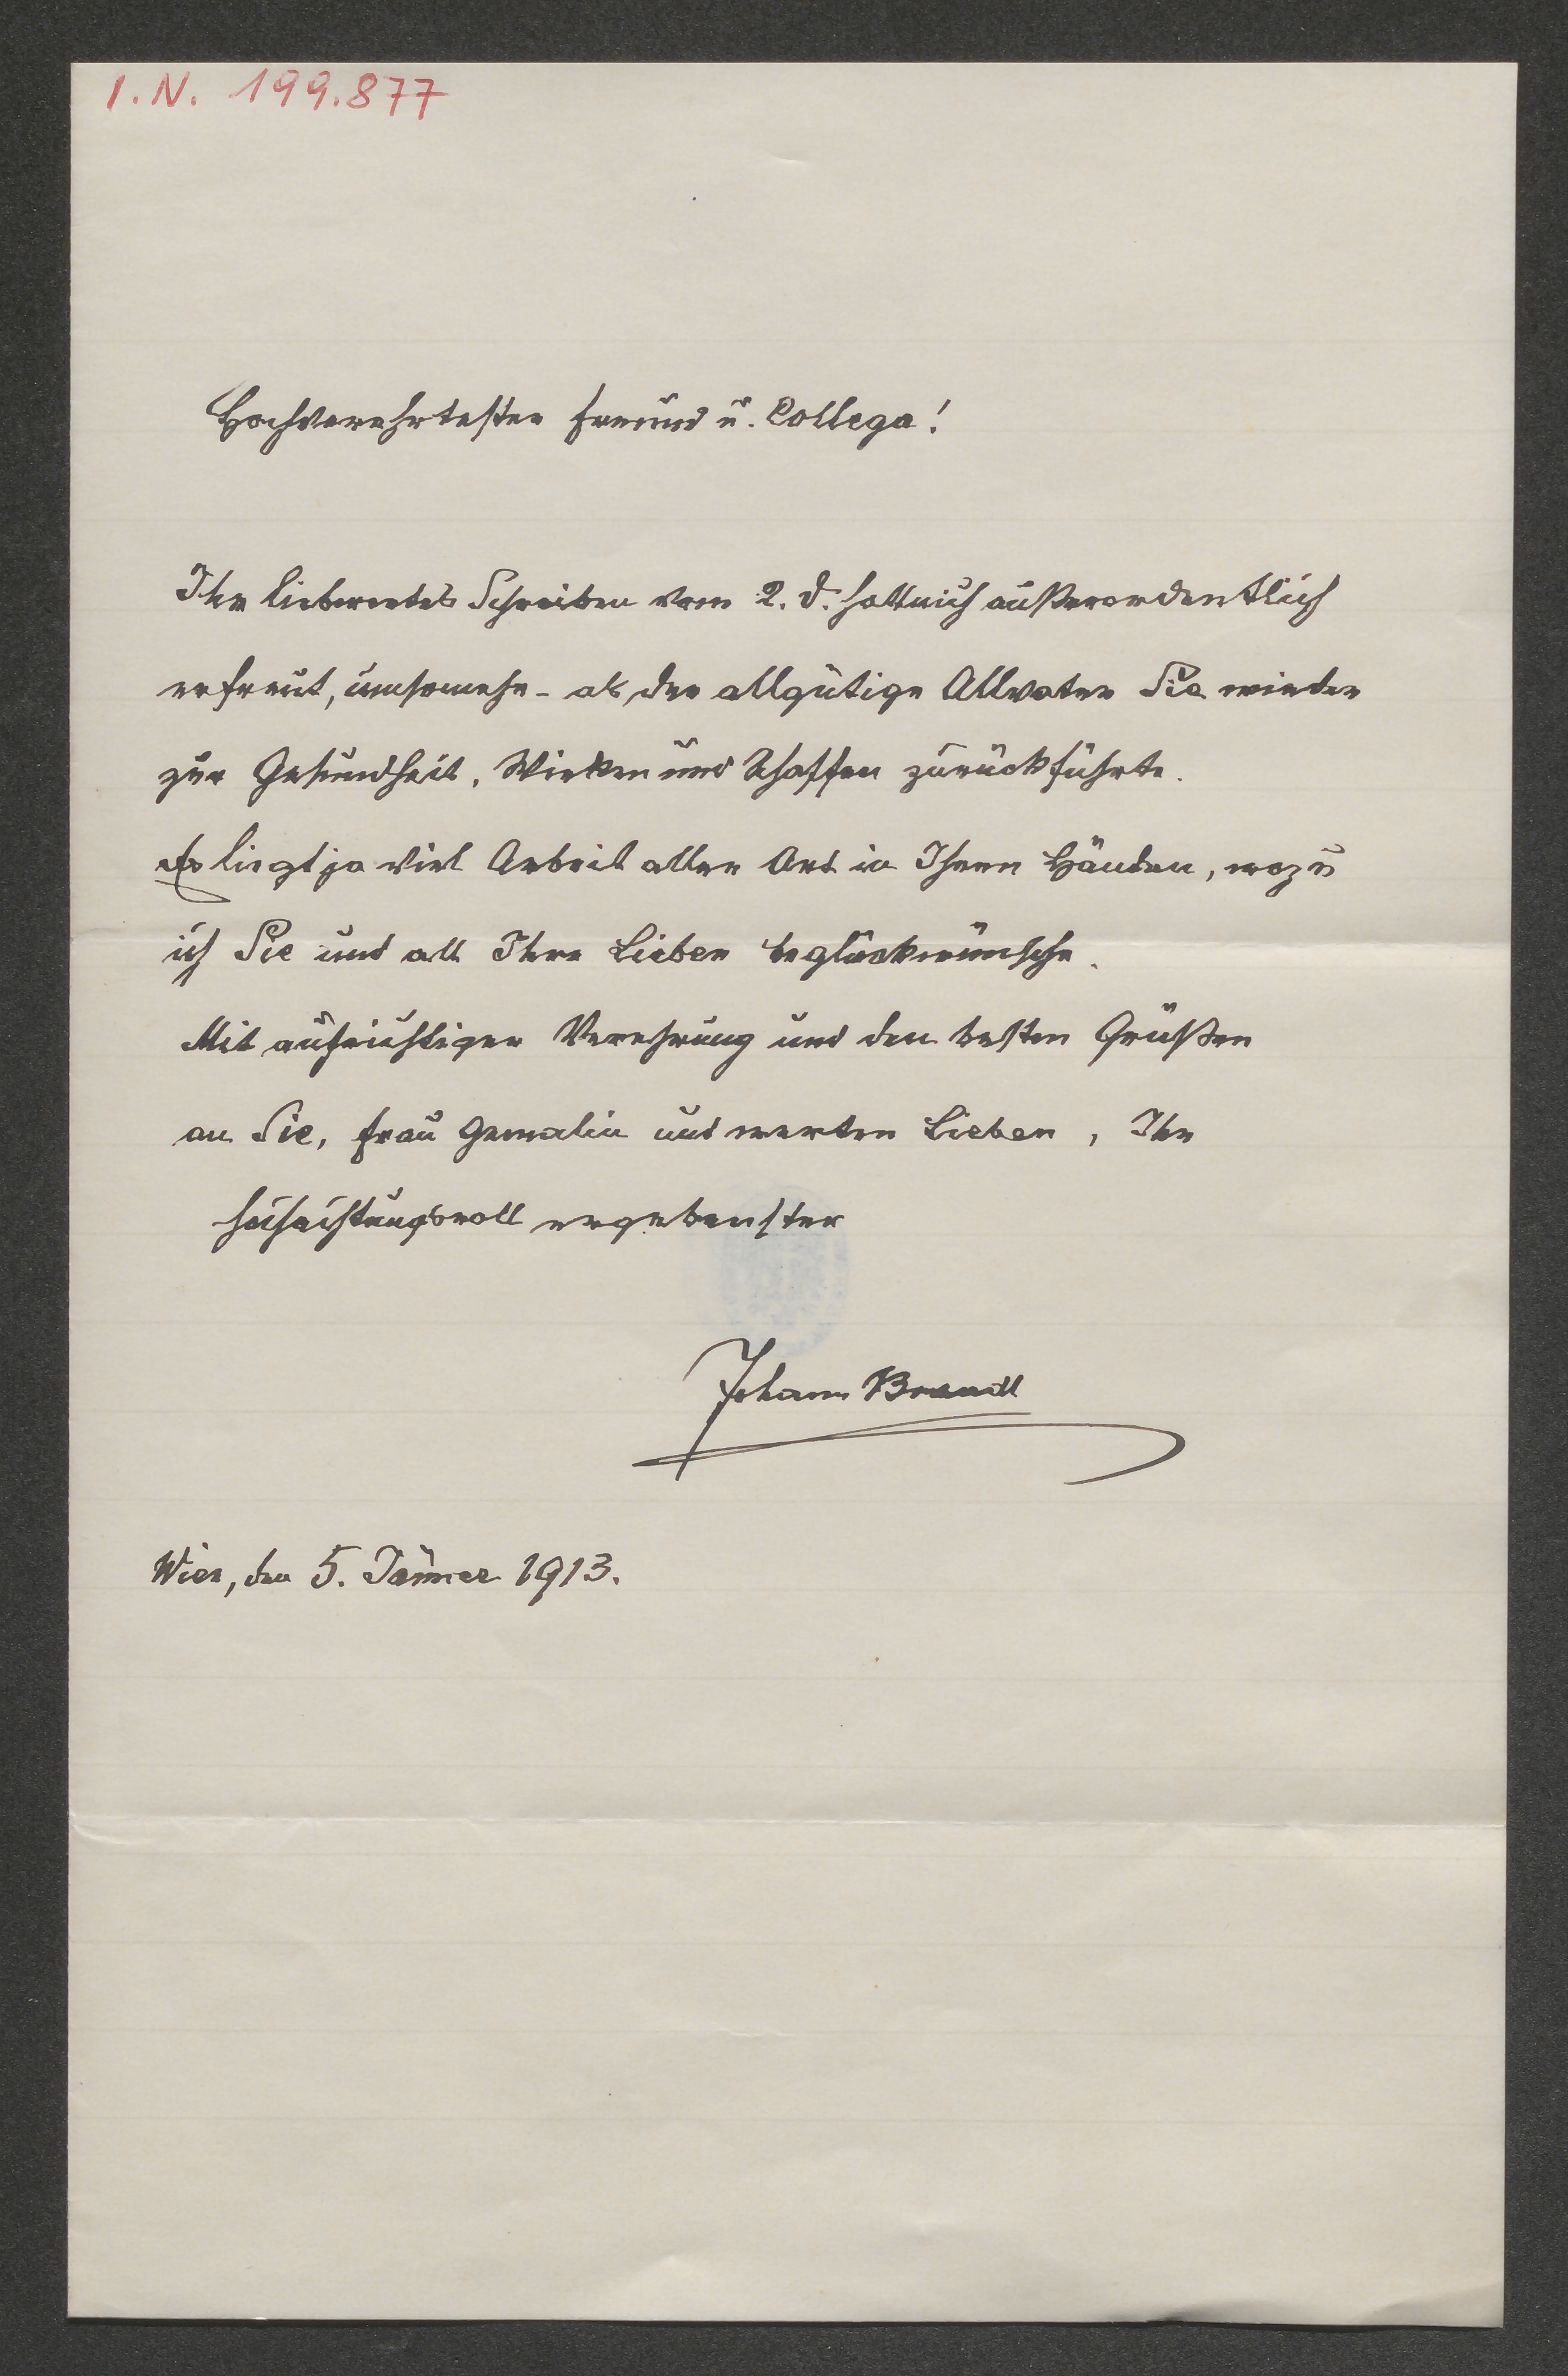 I.N. 199.877
Hochverehrtester Freund u. Collega!
Ihr liebwertes Schreiben vom 2. d. hat mich außerordentlich
erfreut, umsomehr - als der allgütige Allvater Sie wieder
zur Gesundheit, Wirken und Schaffen zurückführte.
Es liegt ja viel Arbeit aller Art in Ihren Händen, wozu
ich Sie und all Ihre Lieben beglückwünsche.
Mit aufrichtiger Verehrung und den besten Grüßen
an Sie, Frau Gemalin und werten Lieben, Ihr
hochachtungsvoll ergebenster
Johann Brandl
Wien, den 5. Jänner 1913.